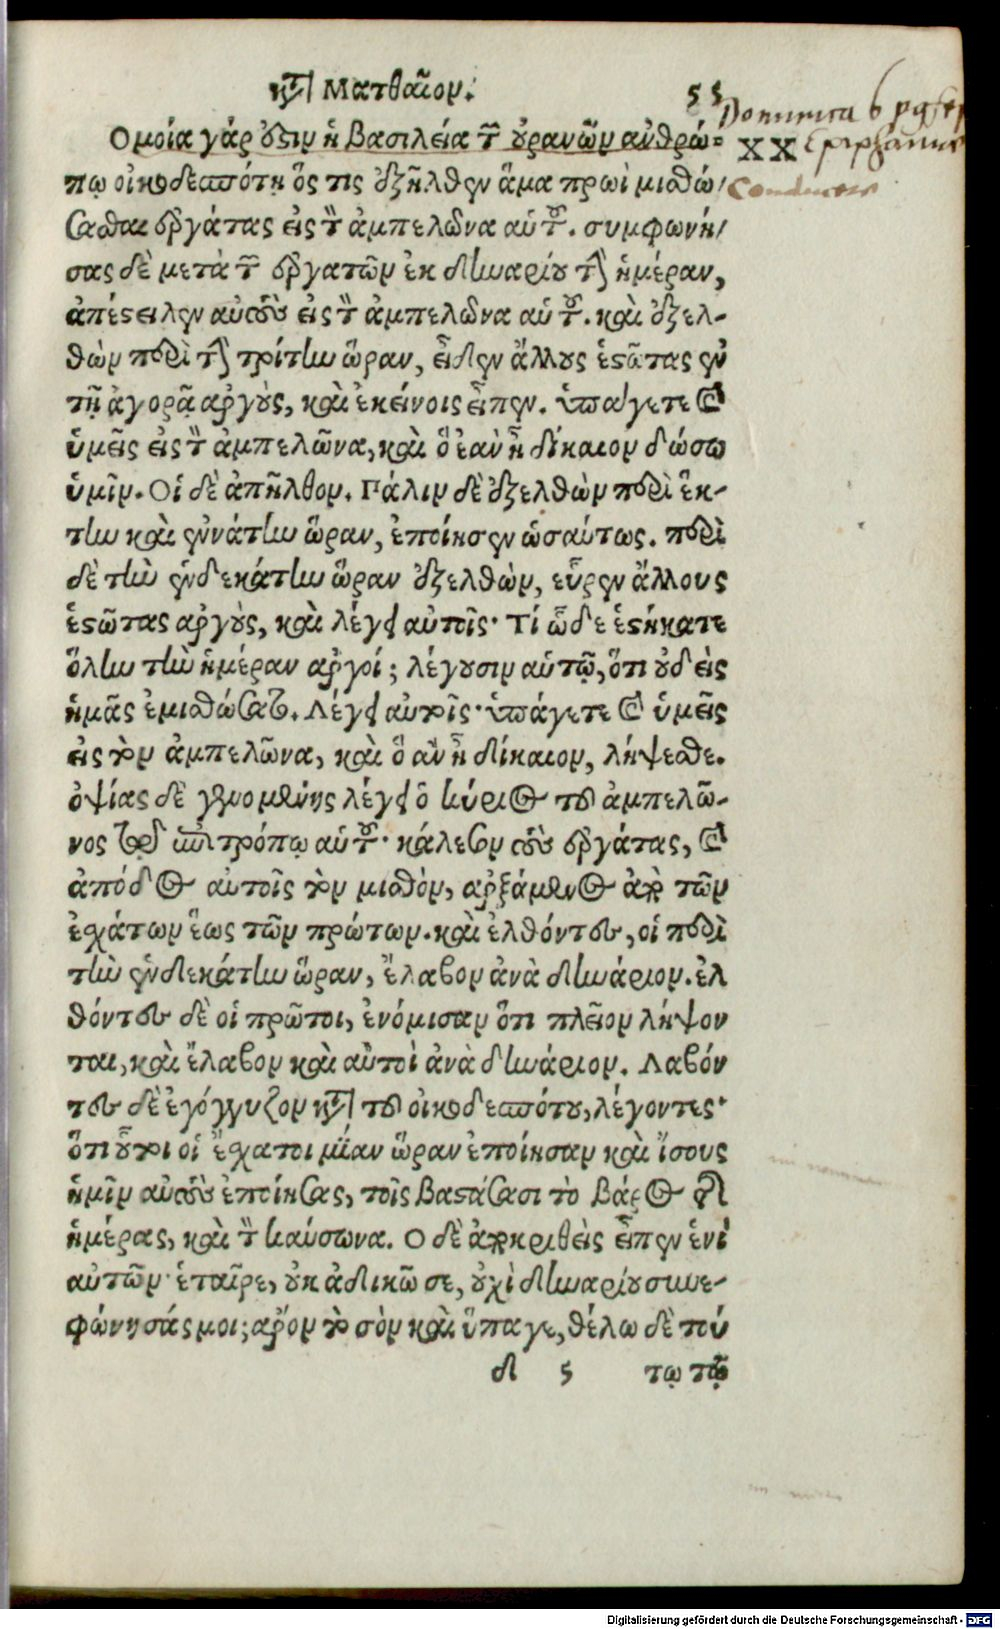 κτ Ματθαῖον. 55
Domininca 6 pg
Ομοία γάρ ὅστιν ἡ βασιλεία τ͂ ὀρανῶν ἀνθρώ- XX Epiphanie
πῳ οἰκοδεσπότῃ ὅς τις ἐξῆλθεν ἅμα πρωῒ μισθώ/
σασθαι ἐργάτας εἰς τ̀ ἀμπελῶνα αὑτοῦ. συμφωνή/
σας δὲ μετὰ τ͂ ἐργατῶν ἐκ δηναρίου τὴν ἡμέραν,
ἀπέστειλεν αὐτοὺς εἰς τ̀ ἀμπελῶνα αὑτοῦ. καὶ ἐξελ-
θὼν περὶ τὴν τρίτην ὥραν, εἶδεν ἄλλους ἑστῶτας ἐν
τῇ ἀγορᾷ ἀργοὺς, καὶ ἐκείνοις εἶπεν. ὑπάγετε καὶ
ὑμεῖς εἰς τ̀ ἀμπελῶνα, καὶ ὃ ἐὰν ᾖ δίκαιον δώσω
ὑμῖν. Οἱ δὲ ἀπῆλθον. Πάλιν δὲ ἐξελθὼν περὶ ἕκ-
την καὶ ἐννάτην ὥραν, ἐποίησεν ὡσαύτως. περὶ
δὲ τὴν ἑνδεκάτην ὥραν ἐξελθὼν, εὗρεν ἄλλους
ἑστῶτας ἀργοὺς, καὶ λέγει αὐτοῖς· Τί ὧδε ἑστήκατε
ὅλην τὴν ἡμέραν ἀργοί; λέγουσιν αὑτῷ, ὅτι οὐδεὶς
ἡμᾶς ἐμισθώσατο. Λέγει αὐτοῖς· ὑπάγετε καὶ ὑμεῖς
εἰς τὸν ἀμπελῶνα, καὶ ὃ ἂν ᾖ δίκαιον, λήψεσθε.
ὀψίας δὲ γενομένης λέγει ὁ κύριος τοῦ ἀμπελῶ-
νος τῷ ἐπιτρόπῳ αὑτοῦ· κάλεσον τοὺς ἐργάτας, καὶ
ἀπόδος αὐτοῖς τὸν μισθὸν, ἀρξάμενος ἀπὸ τῶν
ἐσχάτων ἕως τῶν πρώτων. καὶ ἐλθόντες, οἱ περὶ
τὴν ἑνδεκάτην ὥραν, ἔλαβον ἀνὰ δηνάριον. ἐλ
θόντες δὲ οἱ πρῶτοι, ἐνόμισαν ὅτι πλεῖον λήψον
ται, καὶ ἔλαβον καὶ αὐτοὶ ἀνὰ δηνάριον. Λαβόν
τες δὲ ἐγόγγυζον κτ τοῦ οἰκοδεσπότου, λέγοντες·
ὅτι οὗτοι οἱ ἔσχατοι μίαν ὥραν ἐποίησαν καὶ ἴσους
ἡμῖν αὐτοὺς ἐποίησας, τοῖς βαστάσασι τὸ βάρος τῆς
ἡμέρας, καὶ τ̀ καύσωνα. Ο δὲ ἀποκριθεὶς εἶπεν ἑνὶ
αὐτῶν· ἑταῖρε, οὐκ ἀδικῶ σε, οὐχὶ δηναρίου συνε-
φώνησάς μοι; ἆρον τὸ σὸν καὶ ὕπαγε, θέλω δὲ τού
δ 5 τῳ τῷ
Digitalisierung gefördert durch die Deutsche Forschungsgemeinschaft - DFG